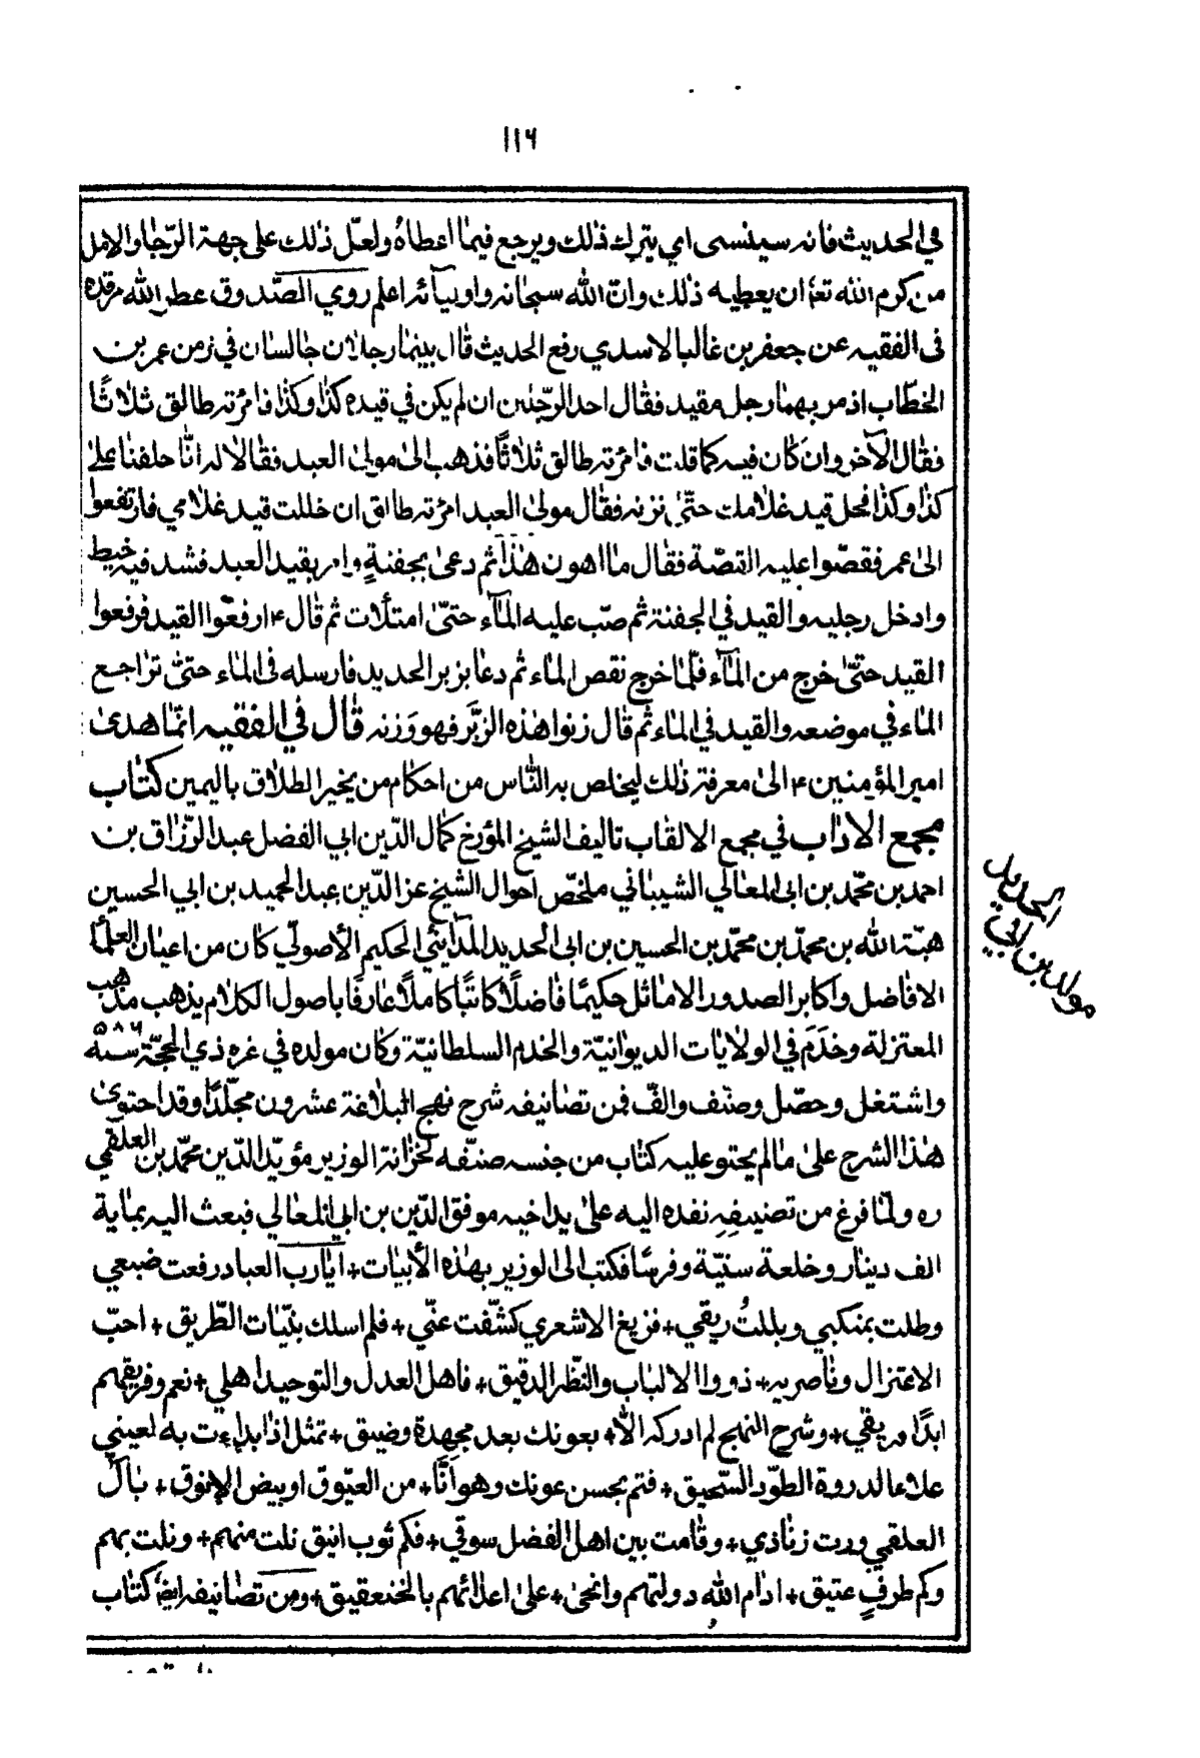 ١١٦
في الحديث فانه سينسى اي يترك ذلك ويرجع فيما اعطاه ولعل ذلك على جهة الرّجاء والامل
من كرم الله تعا ان يعطيه ذلك وانّ الله سبحانه واوليآئه اعلم روي الصّدوق عطر الله مرقده
فى الفقيه عن جعفر بن غالب الاسدي رفع الحديث قال بينما رجلان جالسان في زمن عمر بن
الخطّاب اذ مر بهما رجل مقيد فقال احد الرّجلين ان لم يكن في قيده كذا وكذا فامرئته طالق ثلاثًا
فقال الآخر وان كان فيه كما قلت فامرئته طالق ثلاثًا فذهب الى مولى العبد فقالا له انّا حلفنا على
كذا وكذا فحل قيد غلامك حتّى نزنه فقال مولى العبد امرئته طالق ان حللت قيد غلامي فارتفعوا
الى عمر فقصّوا عليه القصّة فقال ما اهون هذا ثم دعى بجفنةٍ وامر بقيد العبد فشد فيه خيط
وادخل رجليه والقيد في الجفنة ثم صبّ عليه المآء حتىّ امتلأت ثم قال ۴ ارفعوا القيد فرفعوا
القيد حتىّ خرج من المآء فلّما خرج نقص الماء ثم دعا بزبر الحديد فارسله فى الماء حتىّ تراجع
الماء في موضعه والقيد في الماء ثم قال زنوا هذه الزبَر فهو وَزنه قال في الفقيه انّما هدى
امير المؤمنين ۴ الى معرفة ذلك ليخلص به الناس من احكام من يخير الطلاق باليمين كتاب
مجمع الاداب في مجمع الالقاب تاليف الشيخ المؤرخ كمال الدّين ابي الفضل عبد الرّزاق بن
احمد بن محمّد بن ابى المعالي الشيباني ملخّص احوال الشيخ عز الدّين عبد الحميد بن ابي الحسين
هبّة الله بن محمدّ بن محمدّ بن الحسين بن ابى الحديد المدآيني الحكيم الأصولّي كان من اعيان العلمآ
الافاضل واكابر الصدور الاماثل حكيمًا فاضلًا كاتبًا كاملًا عارفًا باصول الكلام يذهب مذهب
المعتزلة وخدَمَ في الولايات الديوانيّة والخدم السلطانيّة وكان مولده في غره ذي الحجّة سنة ٥٨٦
واشتغل وحصّل وصنّف والفّ فمن تصانيفه شرح نهج البلاغة عشرون مجلّدًا وقد احتوى
هذا الشرح على مالم يحتو عليه كتاب من جنسه صنّفه لخزانة الوزير مؤيّد الدّين محمّد بن العلقمي
ره ولمّا فرغ من تصنيفِهِ نفده اليه على يد اخيه موفق الدّين بن ابي المعالي فبعث اليه بماية
الف دينار وخلعة سنيّة وفرسًا فكتب الى الوزير بهذه الأبيات + ايا رب العباد رفعت ضبعي
وطلت بمنكبي وبللتُ ريقي + فزيغ الاشعري كشّفت عنّي + فلم اسلك بنيّات الطّريق + احبّ
الاعتزال وناصريه + ذووا الالباب والنّظر الدقيق + فاهل العدل والتوحيد اهلي + نعم وفريقهم
ابدًا فريقي + وشرح النهج لم ادركه الّا + بعونك بعد مجهدة وضيق + تمثل اذا بدءت به لعيني
علا عا لدروة الطوّد السّحيق + فتم بحسن عونك وهو انًا + من العيّوق او بيض الانوق + بآل
العلقمي ورت زنادي + وقامت بين اهل الفضل سوقي + فكم ثوب انيق نلت منهم + ونلت بهم
وكم طرفٍ عتيق + ادام الله دولتهم وانحى + على اعدائهم بالخنعقيق + ومن تصانيفه ايض كتاب
مولد بن ابي
الحديد